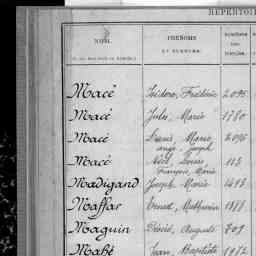 RÉPERTOIRE
NOM. PRÉNOMS NUMÉROS
ET SURNOMS.
Macé Isidore, Frédéric 2095
Macé Jules, Marie 1780
Macé Louis Marie 2096
ange Joseph
Macé Noël Louis 113
François, Marie
Madigand Joseph Marie 1493
Maffar Ernest, Mathurin 1388
Maguin Désiré, Auguste 801
Mahé Jean Baptiste 1982